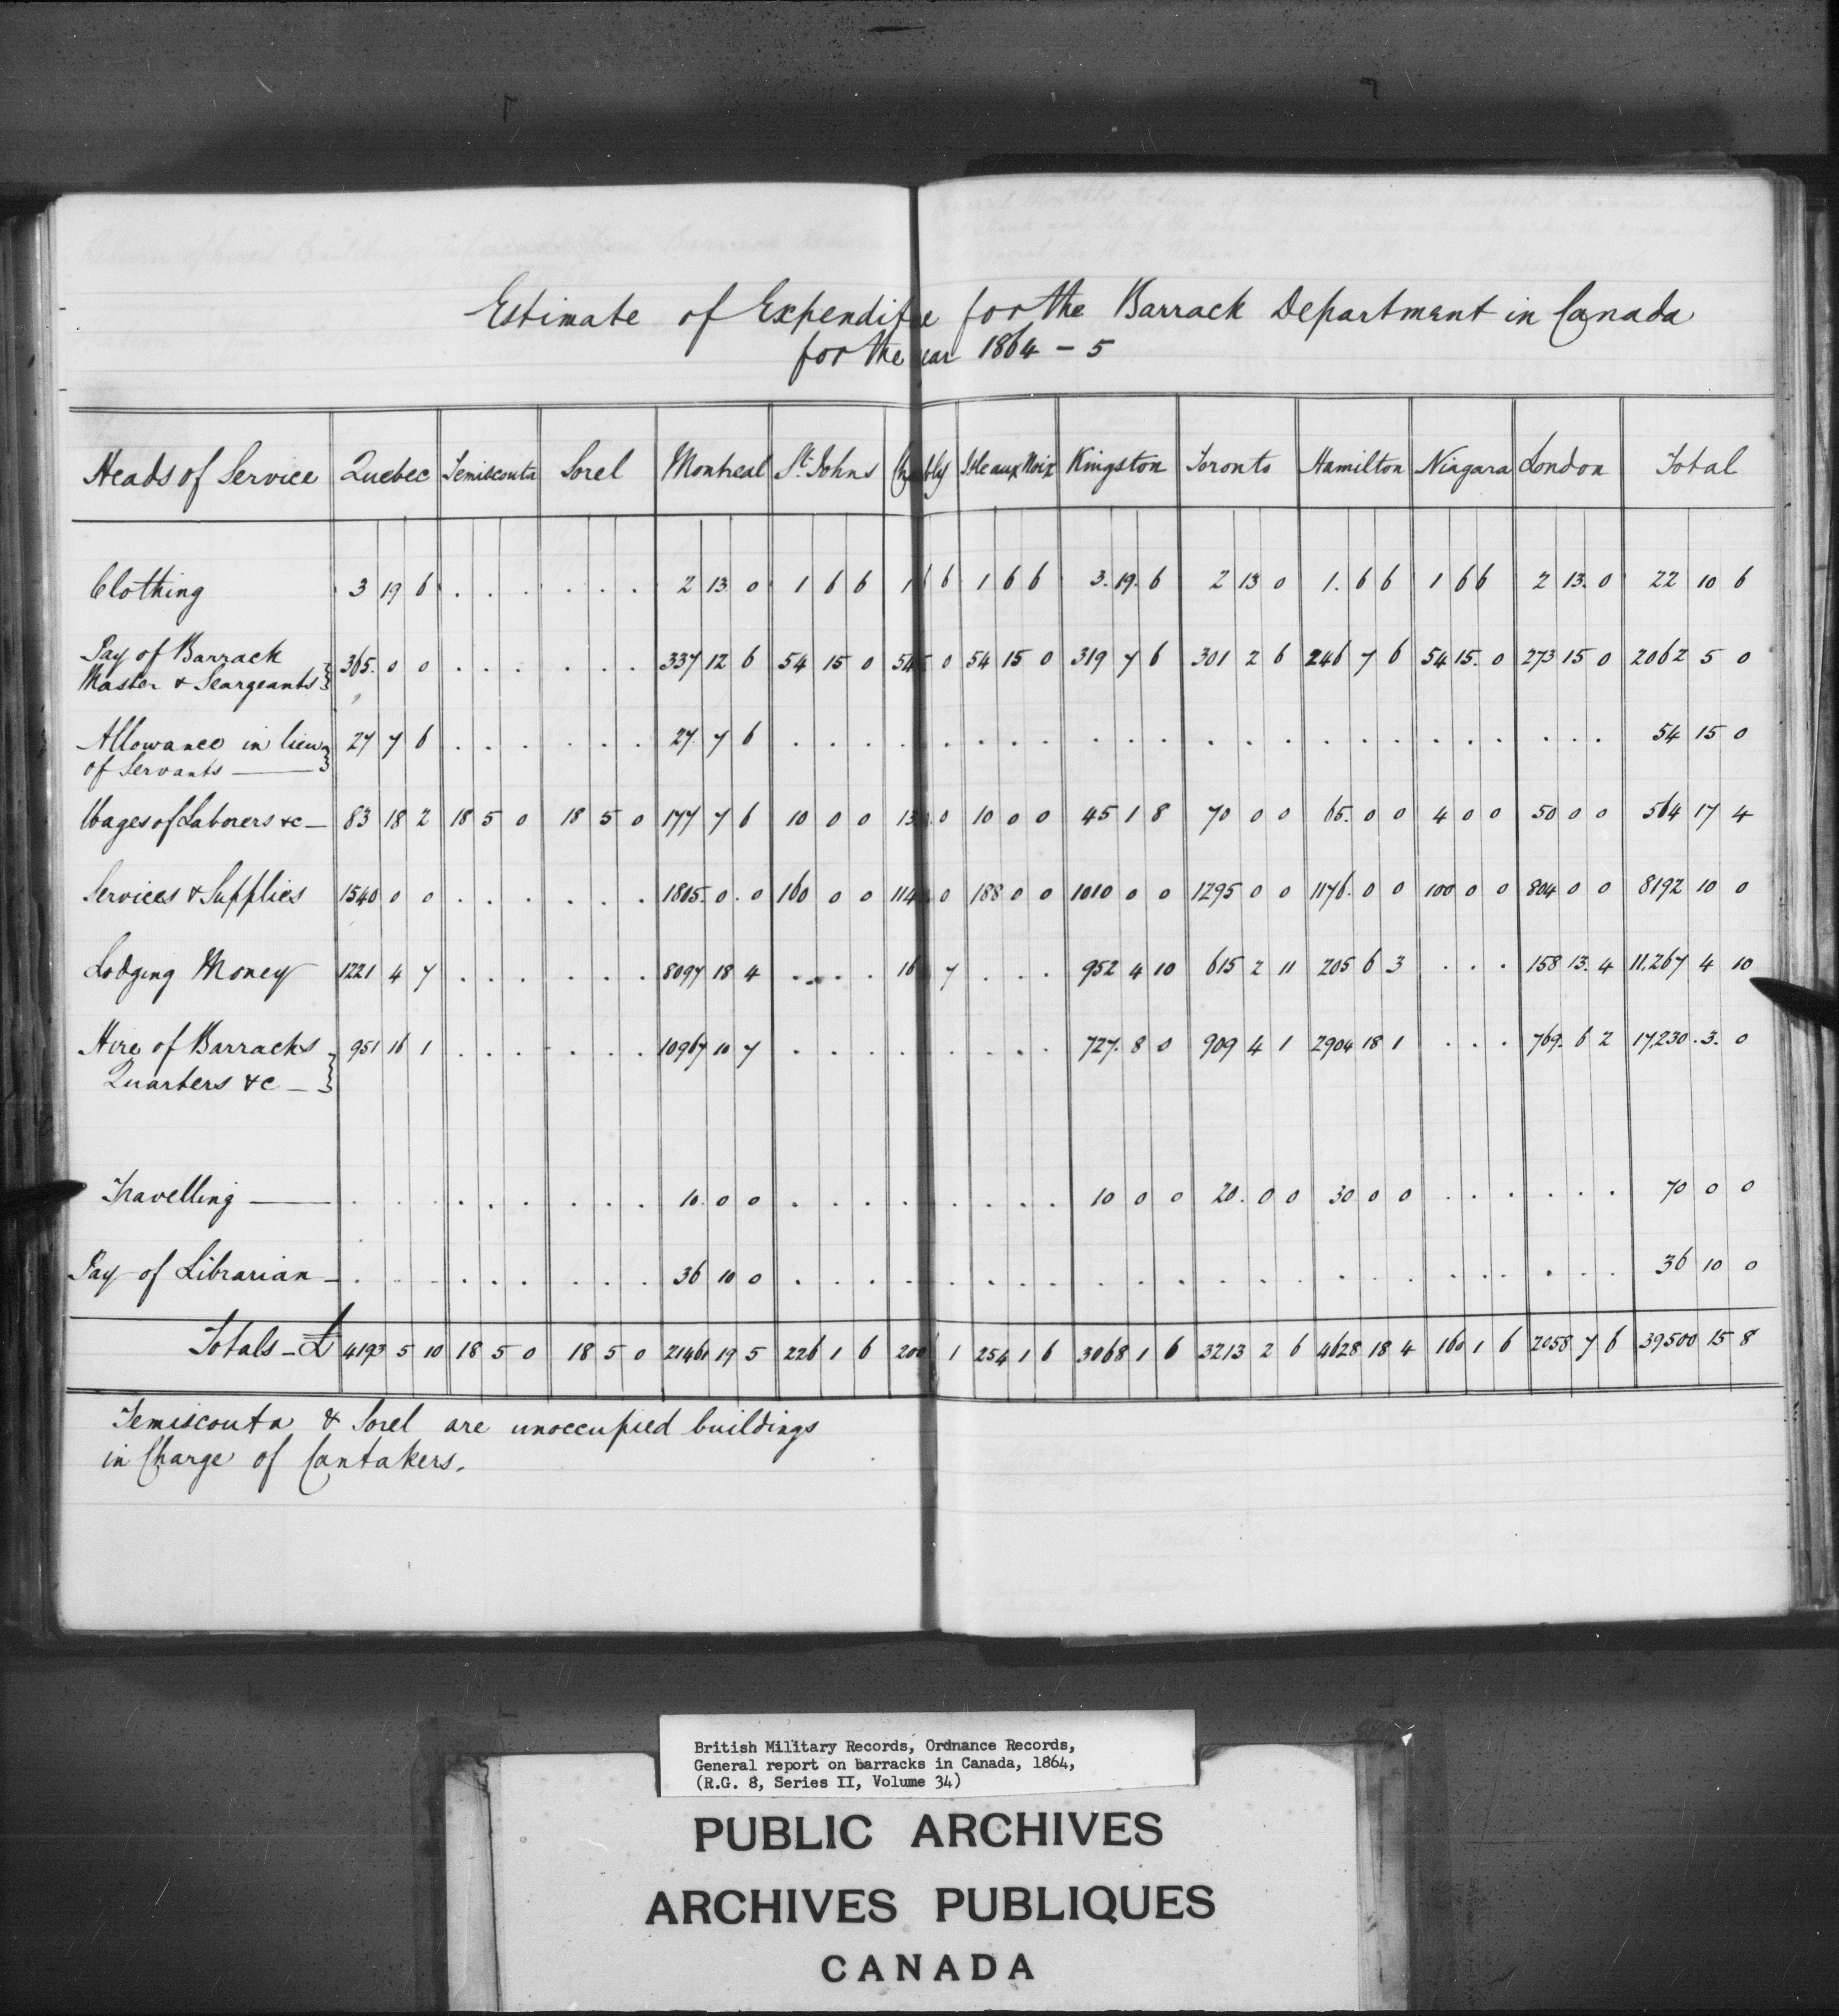 Estimate of Expenditre for the Barrack Department in Canada
for the ear 1864 - 5
Heads of Service Quebec Temiscouta Sorel Montreal St. Johns Chambly Isle aux Noix Kingston Toronto Hamilton Niagara London Total
Clothing 3 19 6 . . . . . . 2 13 0 1 6 6 1 6 6 1 6 6 3. 19. 6 2 13 0 1. 6 6 1 6 6 2 13. 0 22 10 6
Pay of Barrack
Master & Seargeants } 365. 0 0 . . . . . . 337 12 6 54 15 0 54 0 54 15 0 319 7 6 301 2 6 246 7 6 54 15. 0 273 15 0 2062 5 0
Allowance in lieu
of Servants — } 27 7 6 . . . . . . 27. 7 6 . . . . . . . . . . . . . . . . . . . . . . . . 54 15 0
Wages of Laborers &c — 83 18 2 18 5 0 18 5 0 177 7 6 10 0 0 13 0 10 0 0 45 1 8 70 0 0 65. 0 0 4 0 0 50 0 0 564 17 4
Services & Supplies 1540 0 0 . . . . . . 1805. 0. 0 160 0 0 114 0 188 0 0 1010 0 0 1295 0 0 1176. 0 0 100 0 0 804 0 0 8192 10 0
Lodging Money 1221 4 7 . . . . . . 8097 18 4 . . . . 16 7 . . . 952 4 10 615 2 11 205 6 3 . . . 158 13. 4 11,267 4 10
Hire of Barracks
Quarters &c — } 951 16 1 . . . . . . 10967 10 7 . . . . . . . . . 727. 8 0 909 4 1 2904 18 1 . . . 769. 6 2 17,230. 3. 0
Travelling — . . . . . . . . . 10. 0 0 . . . . . . . . . 10 0 0 20. 0 0 30 0 0 . . . . . . 70 0 0
Pay of Librarian — . . . . . . . . . 36 10 0 . . . . . . . . . . . . . . . . . . . . . . . . 36 10 0
Totals — £ 4193 5 10 18 5 0 18 5 0 21461 19 5 226 1 6 200 1 254 1 6 3068 1 6 3213 2 6 4628 18 4 160 1 6 2058 7 6 39,500 15 8
Temiscouta & Sorel are unoccupied buildings
in Charge of Cantakers.
British Military Records, Ordnance Records,
General report on barracks in Canada, 1864,
(R.G. 8, Series II, Volume 34)
PUBLIC ARCHIVES
ARCHIVES PUBLIQUES
CANADA